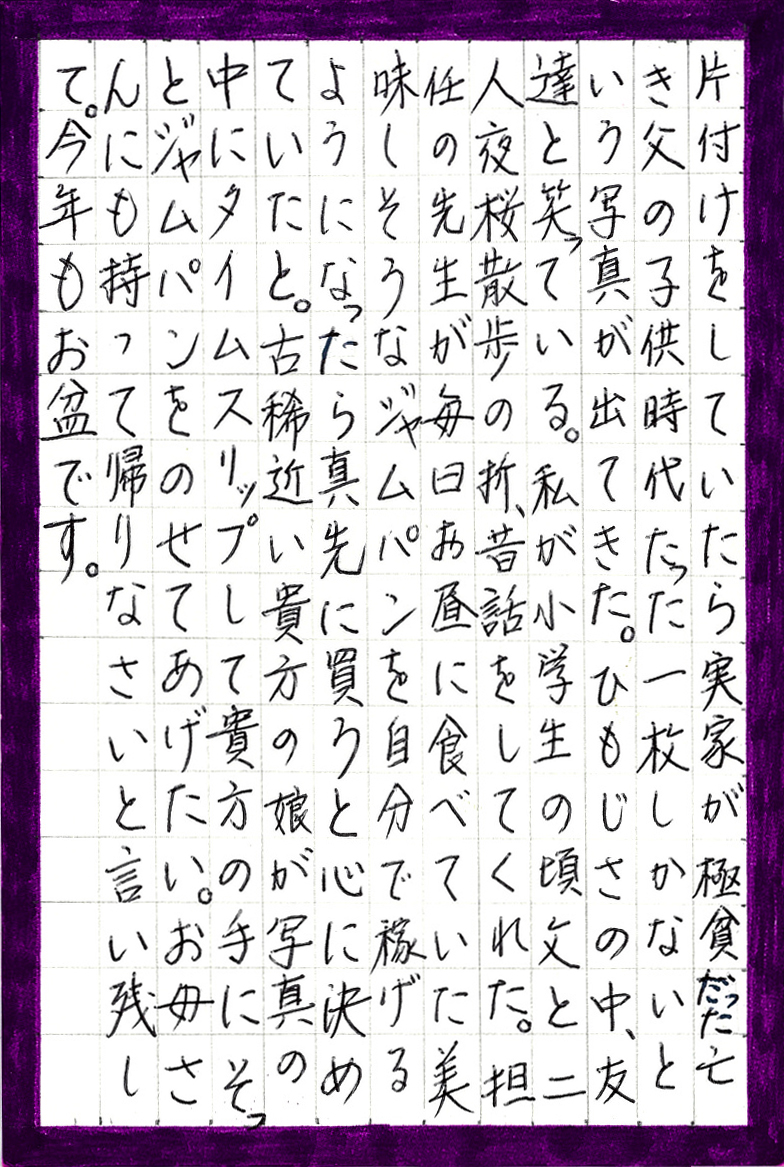 片付けをしていたら実家が極貧だった亡
き父の子供時代たった一枚しかないと
いう写真が出てきた。ひもじさの中、友
達と笑っている。私が小学生の頃父と二
人夜桜散歩の折、昔話をしてくれた。担
任の先生が毎日お昼に食べていた美
味しそうなジャムパンを自分で稼げる
ようになったら真先に買うと心に決め
ていたと。古稀近い貴方の娘が写真の
中にタイムスリップして貴方の手にそっ
とジャムパンをのせてあげたい。お母さ
んにも持って帰りなさいと言い残し
て。今年もお盆です。